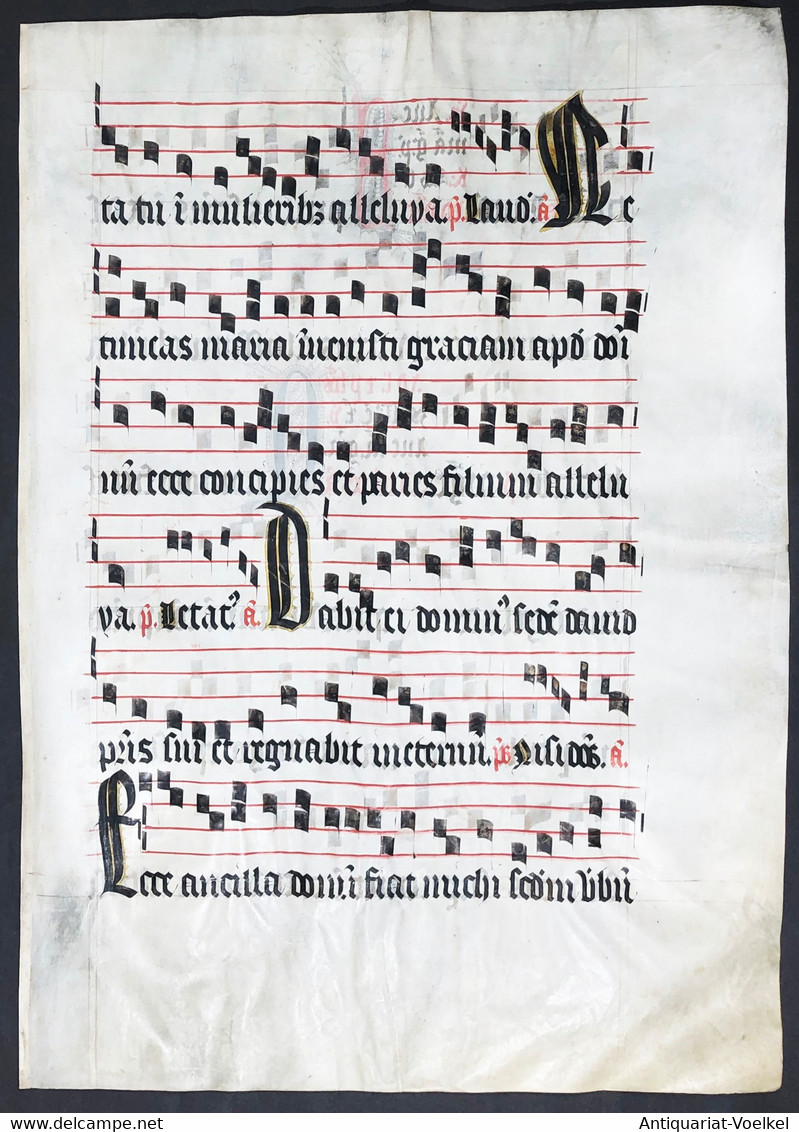 ta tu ī mulieribꝫ alleluya. p̄. Laud'. a͞. Ne
timeas maria īuenisti graciam apd' dōī
nū ecce concipies et paries filium allelu
ya. p̄. Letat'. a͞. Dabit ei domin' sedē dauid
pr̄is sui et regnabit ineternū. p̄s Nisi dōs. a͞.
Ecce ancilla domī fiat michi scdm v̄bū
delcampe.net
Antiquariat-Voelkel